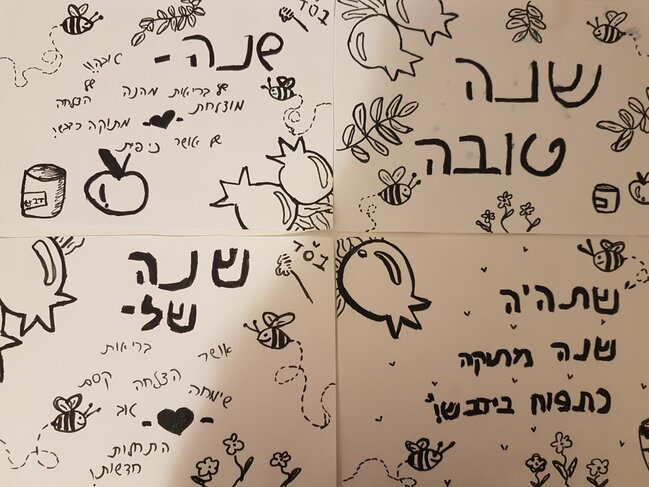 בס"ד
שנה -
טובה!!
של בריאות
מהנה
של הצלחה
מוצלחת
מתוקה כדבש!
של אושר
כיפית
דבש
שנה
טובה
בס"ד
שנה
של -
בריאות
אושר
הצלחה
קסם
שמחה
אהב
התחלות
חדשות!
שתהיה
שנה מתוקה
כתפוח בידבש!